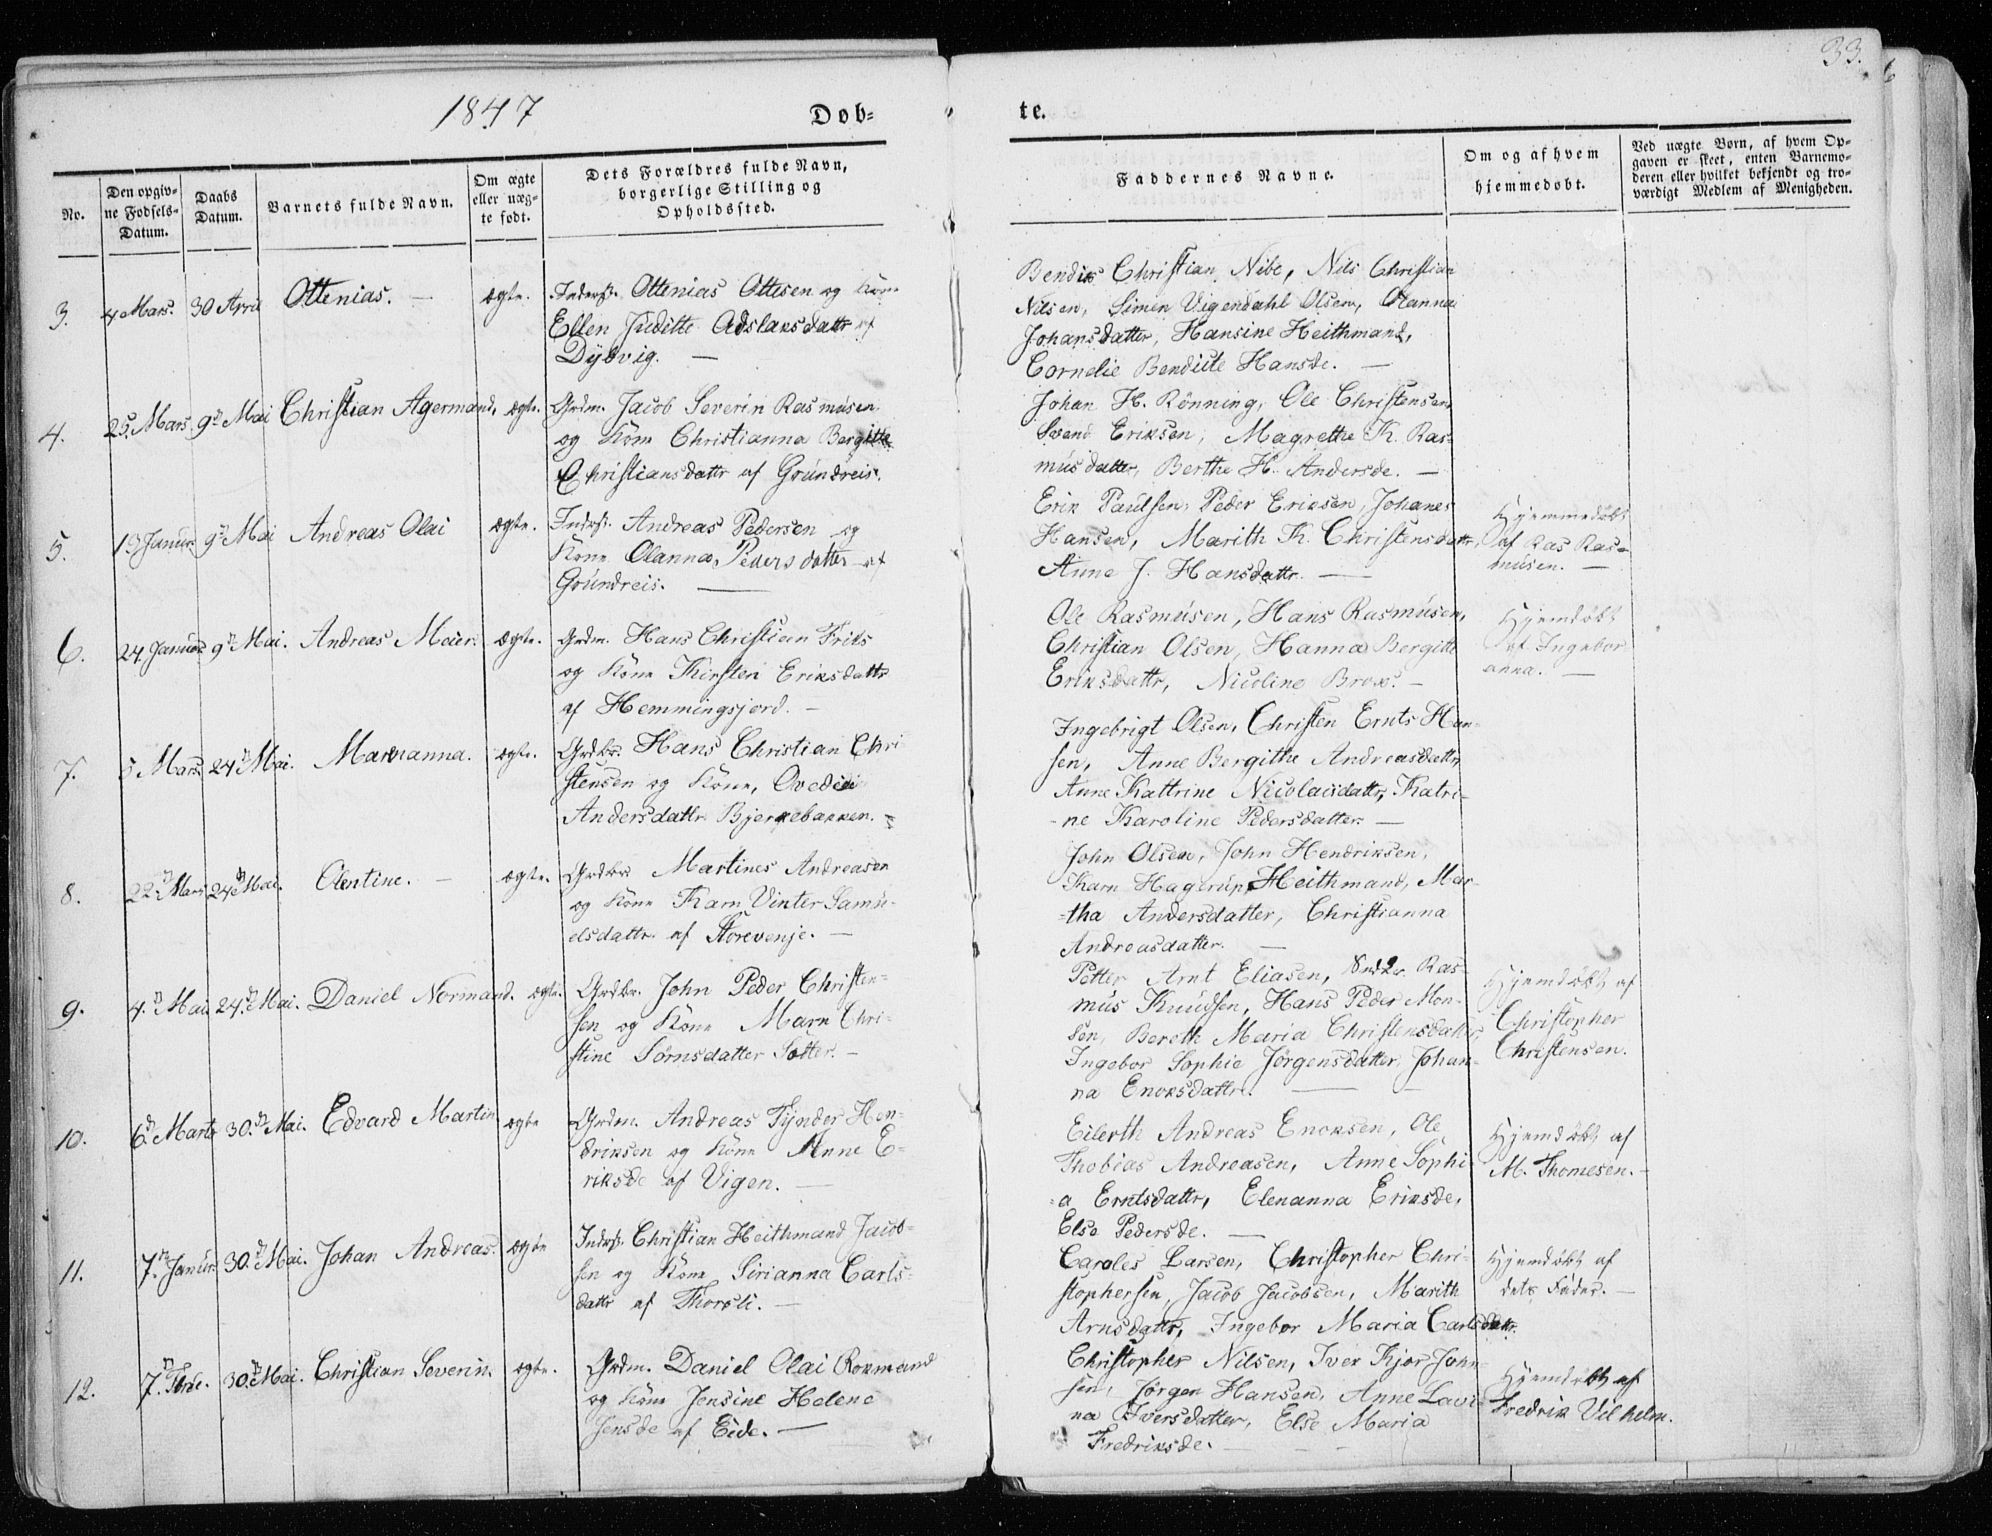 33.
1847
Døb-
te.
No.
Den opgiv-
ne Fødsels-
Datum.
Daabs
Datum.
Barnets fulde Navn.
Om ægte
eller uæg-
te født.
Dets Forældres fulde Navn,
borgerlige Stilling og
Opholdssted.
Faddernes Navne.
Om og af hvem
hjemmedøbt.
Ved uægte Børn, af hvem Op-
gaven er skeet, enten Barnemo-
deren eller hvilket bekjendt og tro-
værdigt Medlem af Menigheden.
3. 4 Mars. 30 April Ottenias. — ægte. Inderst. Ottenias Ottesen og Kone
Ellen Juditte Adslaksdattr af
Dybvig. —
Bendix Christian Nibe, Nils Christian
Nilsen, Simen Vigendahl Olsen, Olanna
Johansdatter, Hansine Heithmand,
Cornelie Bendicte Hansde. —
4. 25. Mars 9de Mai Christian Agermand, ægte. Grdm. Jacob Severin Rasmusen
og Kone Christianna Bergitte
Christiansdattr af Grundreis.
Johan H. Rönning, Ole Christensen,
Svend Eriksen, Magrethe K. Ras-
musdatter, Berthe H. Andersde. —
5. 13 Januar. 9de Mai Andreas Olai ægte. Inderst. Andreas Pedersen og
Kone Olanna Pedersdatter af
Grundreis. —
Erik Paulsen, Peder Eriksen, Johanes
Hansen, Marith K. Christensdattr,
Anne J. Hansdattr. —
Hjemmedøbt
af Ras Ras-
musen. —
6. 24 Januar 9de Mai. Andreas Meier. ægte. Grdm. Hans Christian Friks
og Kone Kirsten Eriksdattr
af Hemmingsjord. —
Ole Rasmusen, Hans Rasmusen,
Christian Olsen, Hanna Bergitte
Eriksdattr, Nicoline Brox. —
Hjemdøbt
af Ingebor
anna. —
7. 5 Mars 24de Mai. Marianna. ægte. Grdbr. Hans Christian Chri
stensen og Kone, Ovedia
Andersdattr Bjerkebakken.
Ingebrigt Olsen, Christen Ernts Han-
sen, Anne Bergithe Andreasdattr,
Anne Kattrine Nicolaisdattr, Katri-
-ne Karoline Pedersdatter. —
8. 22de Mars 24de Mai. Olentine. — ægte. Grdbr Martines Andreasen
og Kone Karn Vinter Samu-
elsdattr. af Storevenje. —
John Olsen, John Hendriksen,
Karn Hagerup Heithmand, Mar-
-tha Andersdatter, Christianna
Andreasdatter. —
9. 4. Mai 24de Mai. Daniel Normand. ægte. Grdbr. John Peder Christen-
sen og Kone Marn Chri-
stine Sörnsdatter Søtter. —
Petter Arnt Eliasen, Ras-
mus Knudsen, Hans Peder Mon-
sen, Bereth Maria Christensdatter,
Ingebor Sophie Jörgensdatter, Johan-
na Enoksdattr. —
Hjemdøbt af
Christopher
Christensen.
10. 6de Marts 30.de Mai. Edvard Martin ægte Grdm. Andreas Tynder Hen-
driksen og Kone Anne E-
riksde af Vigen. —
Eilerth Andreas Enoksen, Ole
Thobias Andreasen, Anne Sophi-
-a Erntsdattr, Elenanna Eriksde,
Else Pedersde. —
Hjemdøbt af
M. Thomesen. —
11. 7. Januar 30.de Mai. Johan Andreas. ægte Inderst. Christian Heithmand Jacob-
sen og Kone Sirianna Carls-
dattr af Thorsli. —
Caroles Larsen, Christopher Chri-
stophersen, Jacob Jacobsen, Marith
Arnsdattr, Ingebor Maria Carlsdattr.
Hjemdøbt af
dets Fader. —
12. 7. 30.de Mai. Christian Severin. ægte. Grdm. Daniel Olai Normand
og Kone Jensine Helene
Jensde af Eide. —
Christopher Nilsen, Iver Kjær John-
sen, Jørgen Hansen, Anne Lavi-
na Iversdatter, Else Maria
Fredriksde. —
Hjemdøbt af
Fredrik Vilhelm.